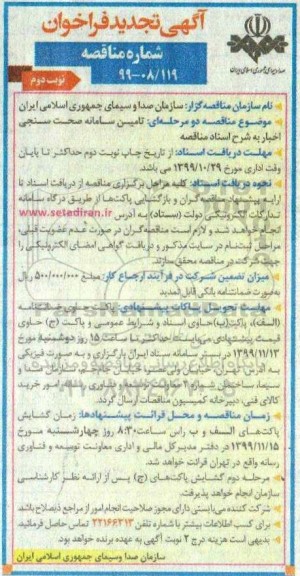 آگهی تجدید فراخوان
شماره مناقصه
۹۹-۰۸/۱۱۹
نوبت دوم
نام سازمان مناقصه‌گزار: سازمان صدا و سیمای جمهوری اسلامی ایران
موضوع مناقصه دو مرحله‌ای: تامین سامانه صحت سنجی
اخبار به شرح اسناد مناقصه
مهلت دریافت اسناد: از تاریخ چاپ نوبت دوم حداکثر تا پایان
وقت اداری مورخ ۱۳۹۹/۱۰/۲۹ می باشد.
نحوه دریافت اسناد: کلیه مراحل برگزاری مناقصه از دریافت اسناد تا
ارایه پیشنهاد مناقصه‌گران و بازگشایی پاکت‌ها از طریق درگاه سامانه
تدارکات الکترونیکی دولت (ستاد) به آدرس www.setadiran.ir
انجام خواهد شد و لازم است مناقصه‌گران در صورت عدم عضویت قبلی،
مراحل ثبت‌نام در سایت مذکور و دریافت گواهی امضای الکترونیکی را
جهت شرکت در مناقصه محقق سازند.
میزان تضمین شرکت در فرآیند ارجاع کار: مبلغ ۵۰۰/۰۰۰/۰۰۰ ریال
به‌صورت ضمانتنامه بانکی قابل تمدید
مهلت تحویل پاکات پیشنهادی: پاکت
(الف)، پاکت (ب) حاوی اسناد و شرایط عمومی و پاکت (ج) حاوی
قیمت پیشنهادی می‌بایست حداکثر تا ساعت ۱۵ روز دوشنبه مورخ
۱۳۹۹/۱۱/۱۳ در بستر سامانه ستاد ایران بارگزاری و به صورت فیزیکی
به آدرس تهران، خیابان ولیعصر،
سیما، ساختمان شماره
کالای فنی، دبیرخانه کمیسیون مناقصات ارسال گردد.
زمان مناقصه و محل قرائت پیشنهادها: زمان گشایش
پاکت‌های الف و ب راس ساعت ۸:۳۰ روز چهارشنبه مورخ
۱۳۹۹/۱۱/۱۵ در دفتر مدیرکل مالی و اداری معاونت توسعه و فناوری
رسانه واقع در تهران قرائت خواهد شد.
مرحله دوم گشایش پاکت‌های (ج) پس از ارائه نظر کارشناسی
سازمان انجام خواهد پذیرفت.
شرکت کننده می‌بایستی دارای مجوز صلاحیت انجام امور از مراجع ذیصلاح باشد
برای کسب اطلاعات بیشتر با شماره تلفن ۲۲۱۶۶۳۱۳ تماس حاصل فرمائید.
بدیهی است هزینه درج ۲ نوبت آگهی به عهده برنده خواهد بود.
سازمان صدا وسیمای جمهوری اسلامی ایران